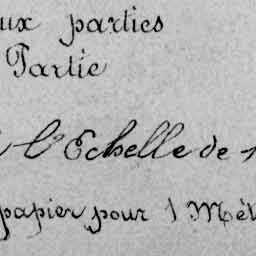 ux parties
Partie
l'Echelle de 1
papier pour 1 Mèt